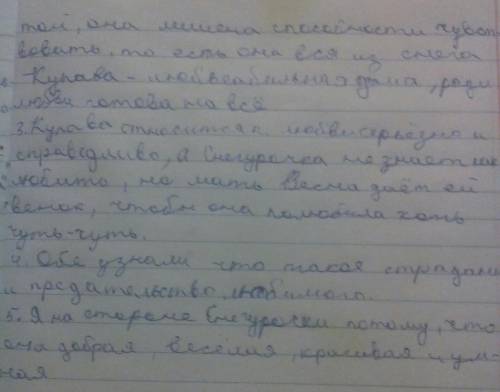 том, она лишена способности чувст
вовать, то есть она вся из снега
Купава - любвеобильная дама, ради
любви готова на всё
3. Купава относится к любви серьёзно и
справедливо, а Снегурочка не знает как
любить, но мать Весна даёт ей
венок, чтобы она полюбила хоть
чуть-чуть.
4. Обе узнали что такое страдани
и предательство любимого.
5. Я на стороне Снегурочки потому, что
она добрая, весёлая, красивая и ум-
ная